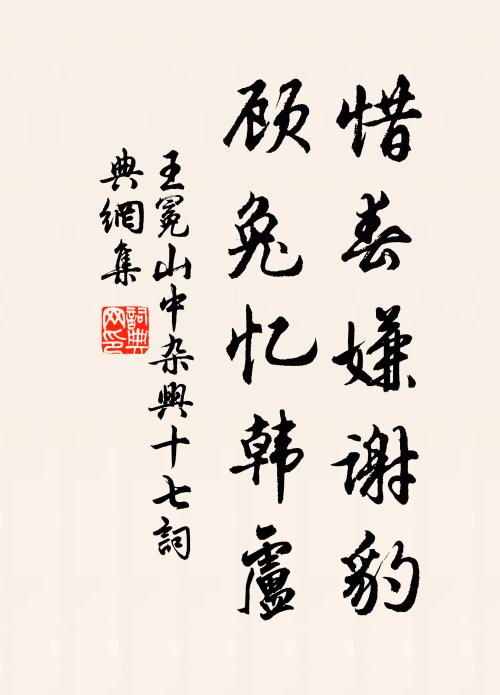 惜春嫌谢豹
顾兔忆韩盧
王冕山中杂興十七詞
典網集
詞典
网印